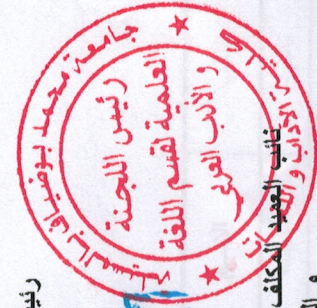 جامعة محمد بوضياف بالمسيلة
رئيس اللجنة
العلمية لقسم اللغة
و الأدب العربي
نائب العميد المكلف